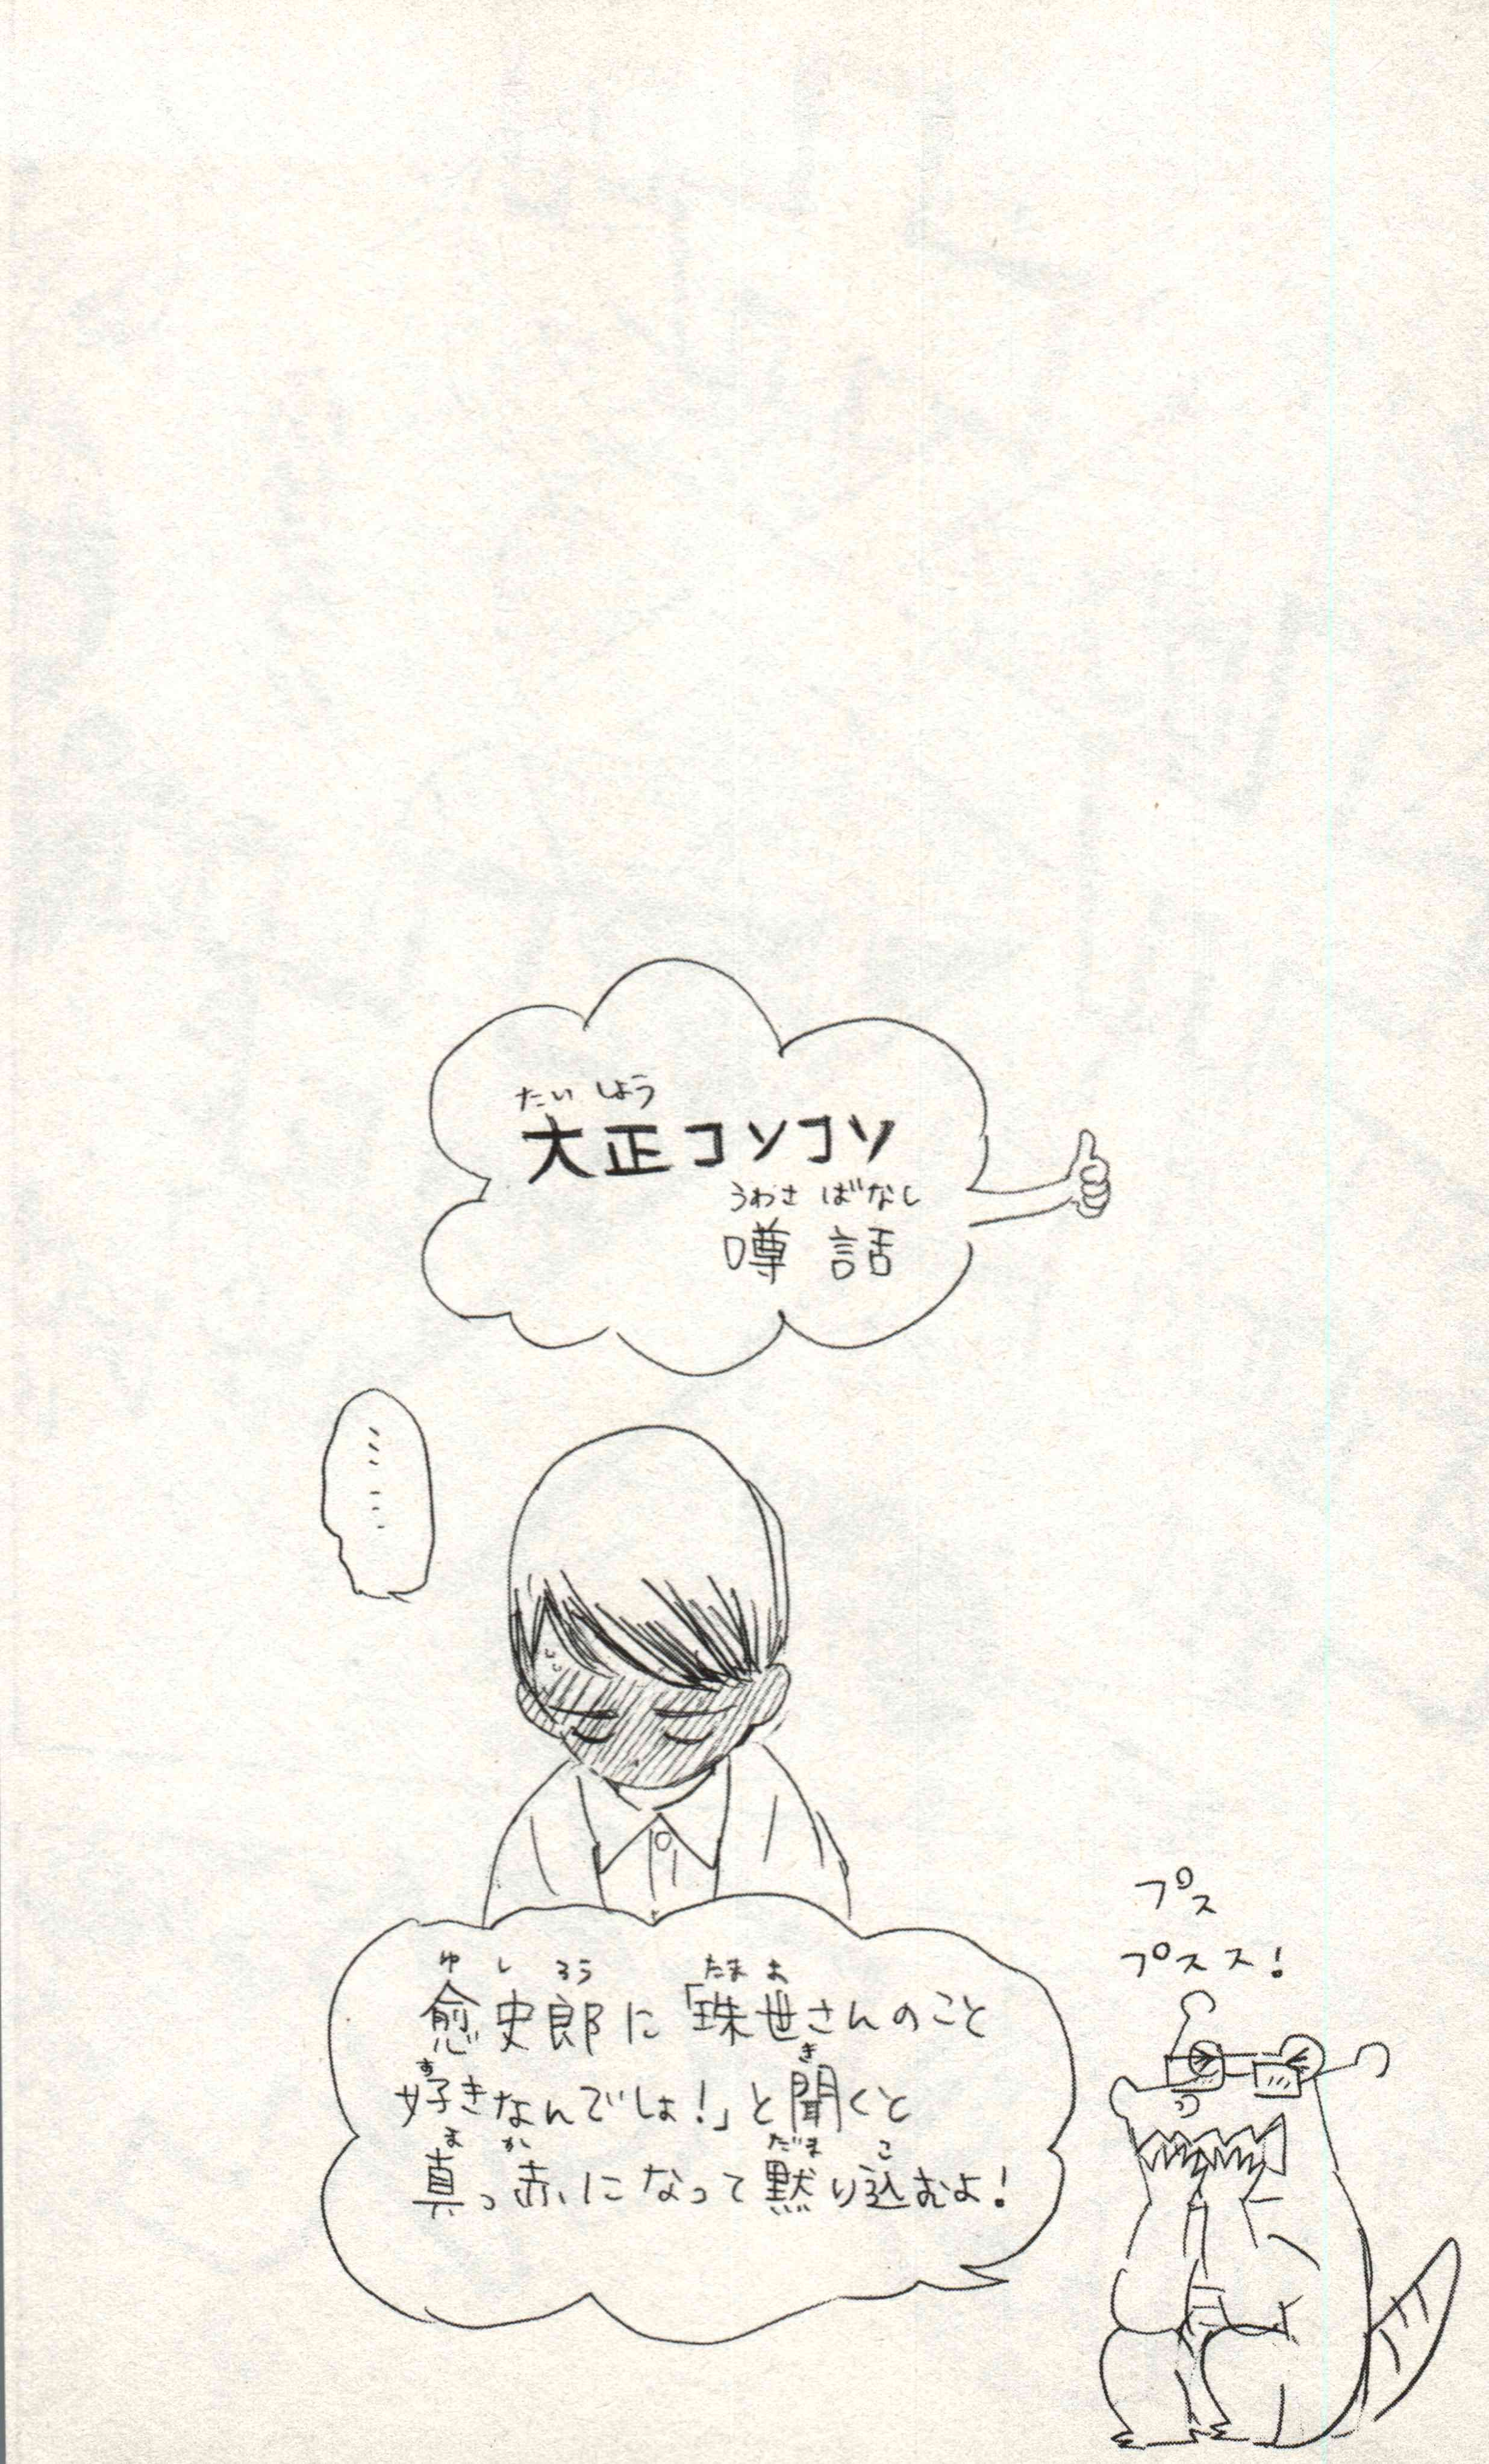 大正コソコソ
噂話
……
愈史郎に「珠世さんのこと
好きなんでしょ!」と聞くと
真っ赤になって黙り込むよ!
プス
プスス!